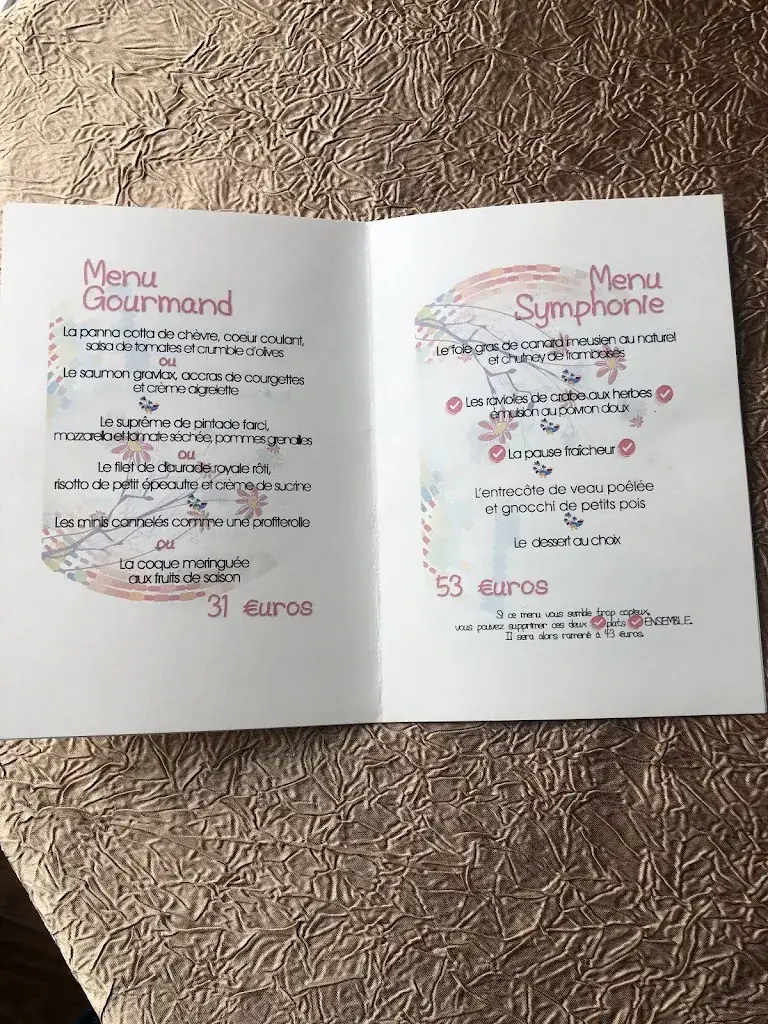 Menu
Gourmand
La panna cotta de chèvre, coeur coulant,
salsa de tomates et crumble d'olives
ou
Le saumon gravlax, accras de courgettes
et crème aigrelette
Le suprême de pintade farci,
mozzarella et tomate séchée, pommes grenailles
ou
Le filet de daurade royale rôti,
risotto de petit épeautre et crème de sucrine
Les minis cannelés comme une profiterolle
ou
La coque meringuée
aux fruits de saison
31 €uros
Menu
Symphonie
Le foie gras de canard meusien au naturel
et chutney de framboises
Les ravioles de crabe aux herbes
émulsion au poivron doux
La pause fraîcheur
L'entrecôte de veau poêlée
et gnocchi de petits pois
Le dessert au choix
53 €uros
Si ce menu vous semble trop copieux,
vous pouvez supprimer ces deux plats ENSEMBLE.
Il sera alors ramené à 43 euros.